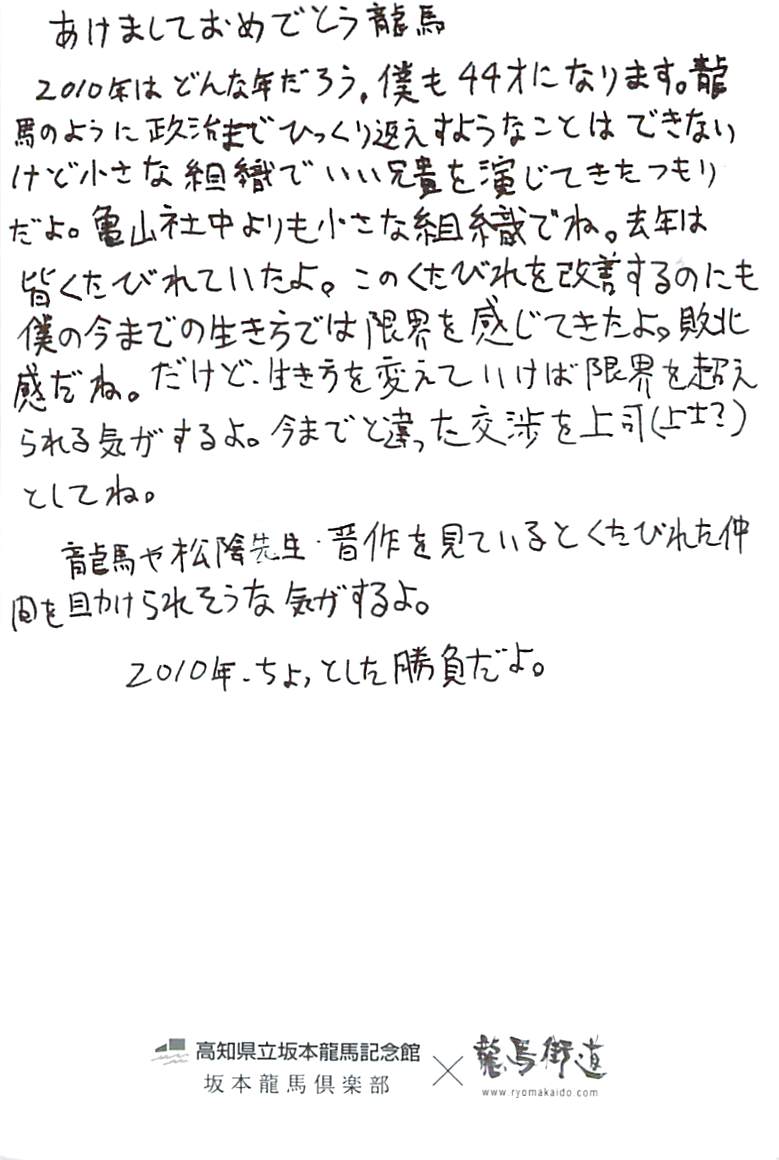 あけましておめでとう龍馬
2010年はどんな年だろう。僕も44才になります。龍
馬のように政治までひっくり返えすようなことはできない
けど小さな組織でいい兄貴を演じてきたつもり
だよ。亀山社中よりも小さな組織でね。去年は
皆くたびれていたよ。このくたびれを改善するのにも
僕の今までの生き方では限界を感じてきたよ。敗北
感だね。だけど、生き方を変えていけば限界を超え
られる気がするよ。今までと違った交渉を上司(上士?)
としてね。
龍馬や松陰先生・晋作を見ているとくたびれた仲
間を助けられそうな気がするよ。
2010年、ちょっとした勝負だよ。
高知県立坂本龍馬記念館
坂本龍馬倶楽部
×
龍馬街道
www.ryomakaido.com